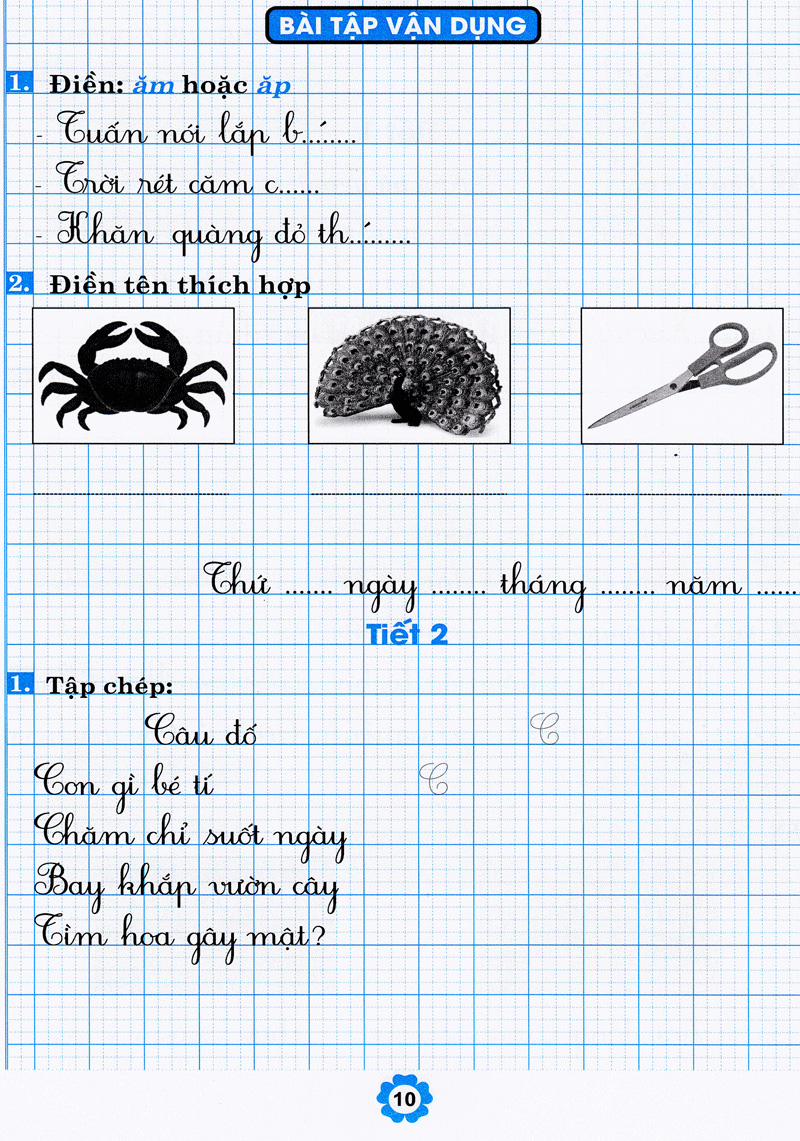 BÀI TẬP VẬN DỤNG
1. Điền: ăm hoặc ăp
- Tuấn nói lắp b..´......
- Trời rét căm c......
- Khăn quàng đỏ th..´.......
2. Điền tên thích hợp
Thứ ....... ngày ........ tháng ........ năm ......
Tiết 2
1. Tập chép:
Câu đố C
Con gì bé tí C
Chăm chỉ suốt ngày
Bay khắp vườn cây
Tìm hoa gây mật?
10